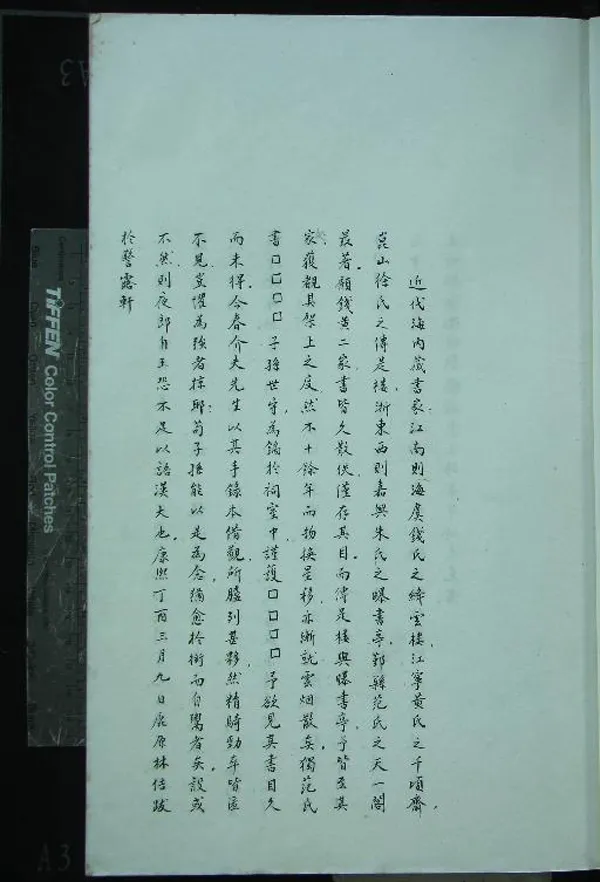 近代海內藏書家江南則海虞錢氏之絳雲樓江寧黃氏之千頃齋
崑山徐氏之傳是樓浙東西則嘉興朱氏之曝書亭鄞縣范氏之天一閣
最著顧錢黃二家書皆久散佚僅存其目而傳是樓與曝書亭予皆至其
家獲觀其架上之庋然不十餘年而物換星移亦漸就雲烟散矣獨范氏
書□□□□子孫世守為鐍於祠室中謹護□□□□予欲見其書目久
而未得今春介夫先生以其手錄本借觀所臚列甚夥然精騎勁卒皆匿
不見豈懼為強者掠耶苟子孫能以是為念猶愈於衒而自鬻者矣設或
不然則夜郎自王恐不足以語漢大也康熙丁酉三月九日鹿原林佶跋
於警露軒
TIFFEN Color Control Patches
A3
A3